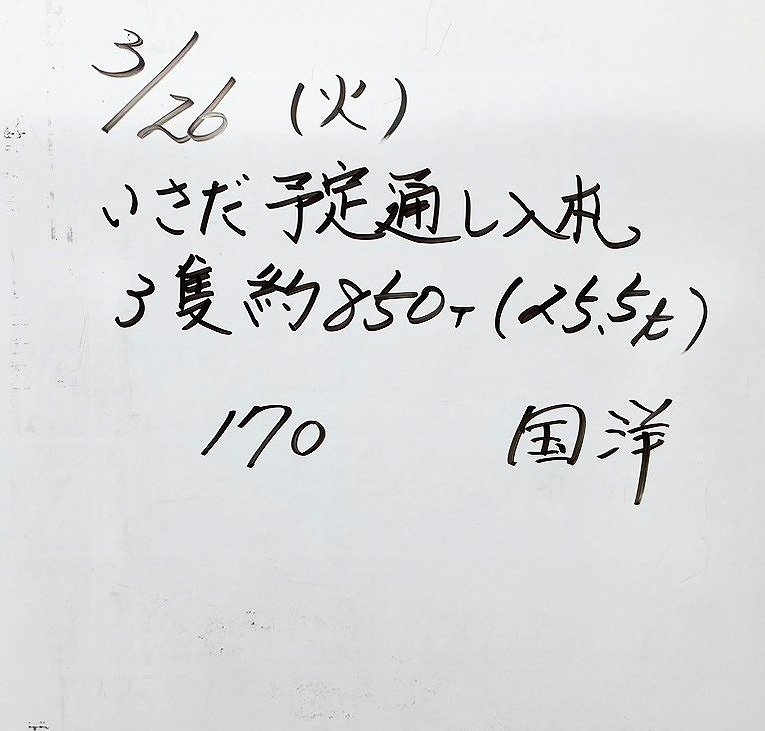 3/26 (火)
いさだ予定通し入札
3隻 約850T (25.5t)
170 国洋